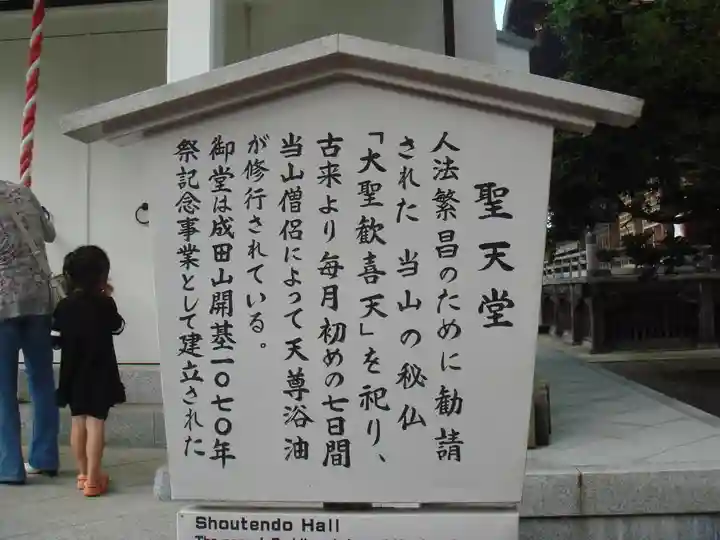 聖天堂
人法繁昌のために勧請
された 当山の秘仏
「大聖歓喜天」を祀り、
古来より毎月初めの七日間
当山僧侶によって天尊浴油
が修行されている。
御堂は成田山開基一〇七〇年
祭記念事業として建立された
Shoutendo Hall